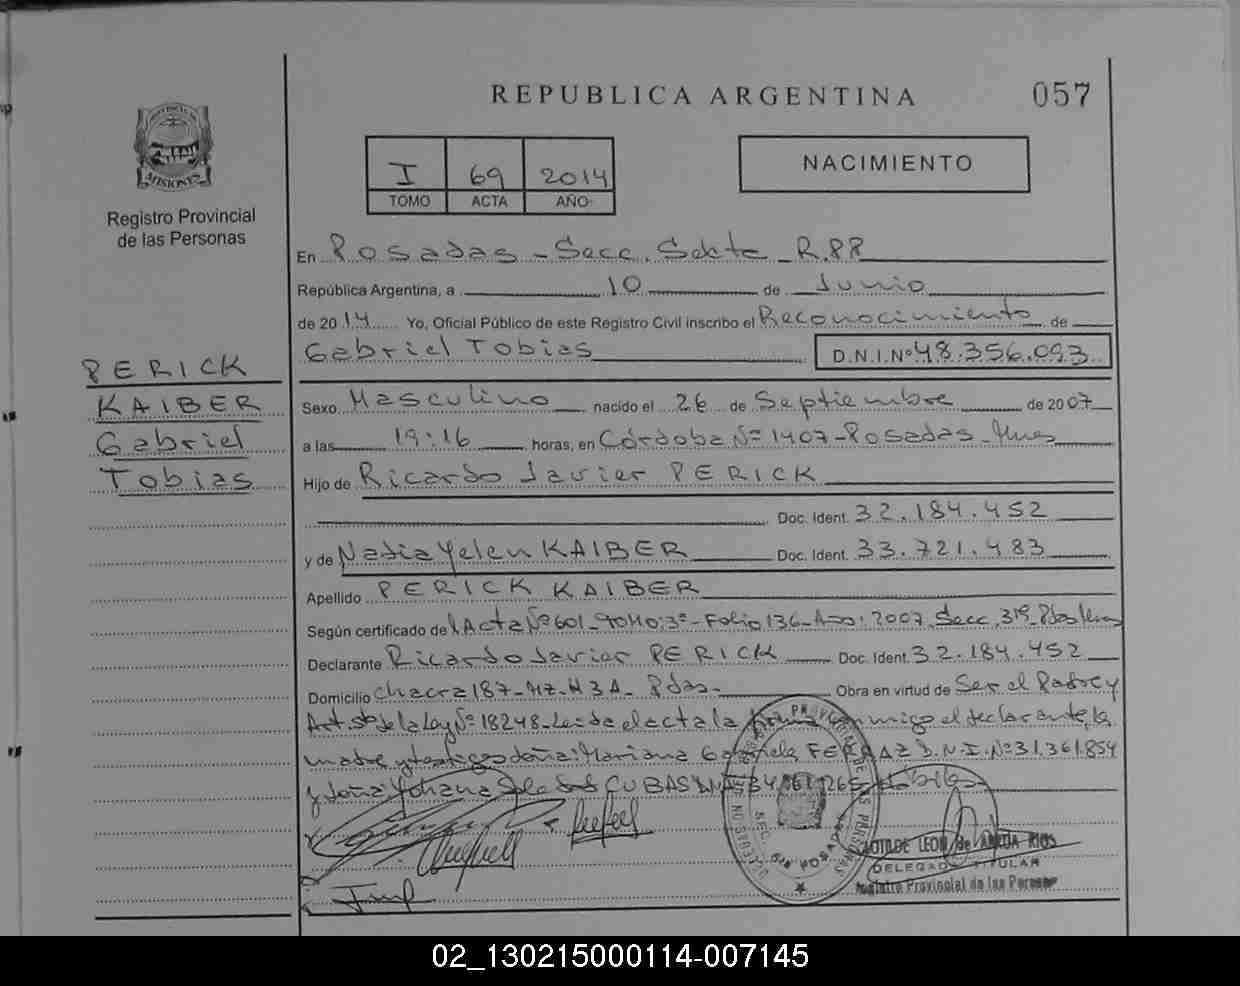 REPUBLICA ARGENTINA
057
PROVINCIA DE
MISIONES
Registro Provincial
de las Personas
I 69 2014
TOMO ACTA AÑO
NACIMIENTO
En Posadas - Secc. Sexta - R.PP
República Argentina, a 10 de Junio
de 2014 Yo, Oficial Público de este Registro Civil inscribo el Reconocimiento de
Gabriel Tobias D.N.I.Nº 48.356.093
PERICK
KAIBER
Gabriel
Tobias
Sexo Masculino nacido el 26 de Septiembre de 2007
a las 19:16 horas, en Córdoba Nº 1407 - Posadas - Mnes
Hijo de Ricardo Javier PERICK
Doc. Ident. 32.184.452
y de Nadia Yelen KAIBER Doc. Ident. 33.721.483
Apellido PERICK KAIBER
Según certificado de Acta Nº 601 - TOMO: 3º - Folio 136 - Año: 2007 Secc. Pdas Mnes
Declarante Ricardo Javier PERICK Doc. Ident. 32.184.452
Domicilio Chacra 187 - Mz - H 3A - Pdas. Obra en virtud de Ser el Padre y
Art. 5to de la Ley Nº 18248 - Leida el acta la firma conmigo el declarante, la
madre y testigos doña: Mariana Gabriela FERRAZ D.N.I. Nº 31.361.854
y doña Yohana Soledad CUBAS
DELEGADA TITULAR
Registro Provincial de las Personas
02_130215000114-007145